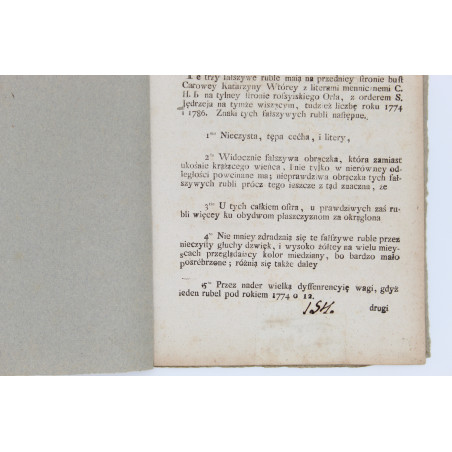 Te trzy fałszywe ruble maią na przedniey stronie bust
Carowey Katarzyny Wtórey z literami menniczemi C.
H. I. na tylney stronie rossyiskiego Orła, z orderem S.
Jędrzeia na tymże wiszącym, tudzież liczbę roku 1774
i 1786. Znaki tych fałszywych rubli następne.
1mo Nieczysta, tępa cecha, i litery,
2do Widocznie fałszywa obrączka, która zamiast
ukośnie krążącego wieńca, i nie tylko w nierówney od-
ległości powcinane ma; nieprawdziwa obrączka tych fał-
szywych rubli prócz tego ieszcze z tąd znaczna, że
3tio U tych całkiem ostra, u prawdziwych zaś ru-
bli więcey ku obydwom płaszczyznom za okrąglona
4to Nie mniey zdradzaią się te fałszywe ruble przez
nieczysty głuchy dzwięk, i wysoko żółtey na wielu miey-
scach przeglądaiący kolor miedziany, bo bardzo mało
posrébrzone; różnią się także daley
5to Przez nader wielką dyssenrencyię wagi, gdyż
ieden rubel pod rokiem 1774 o 12.
drugi